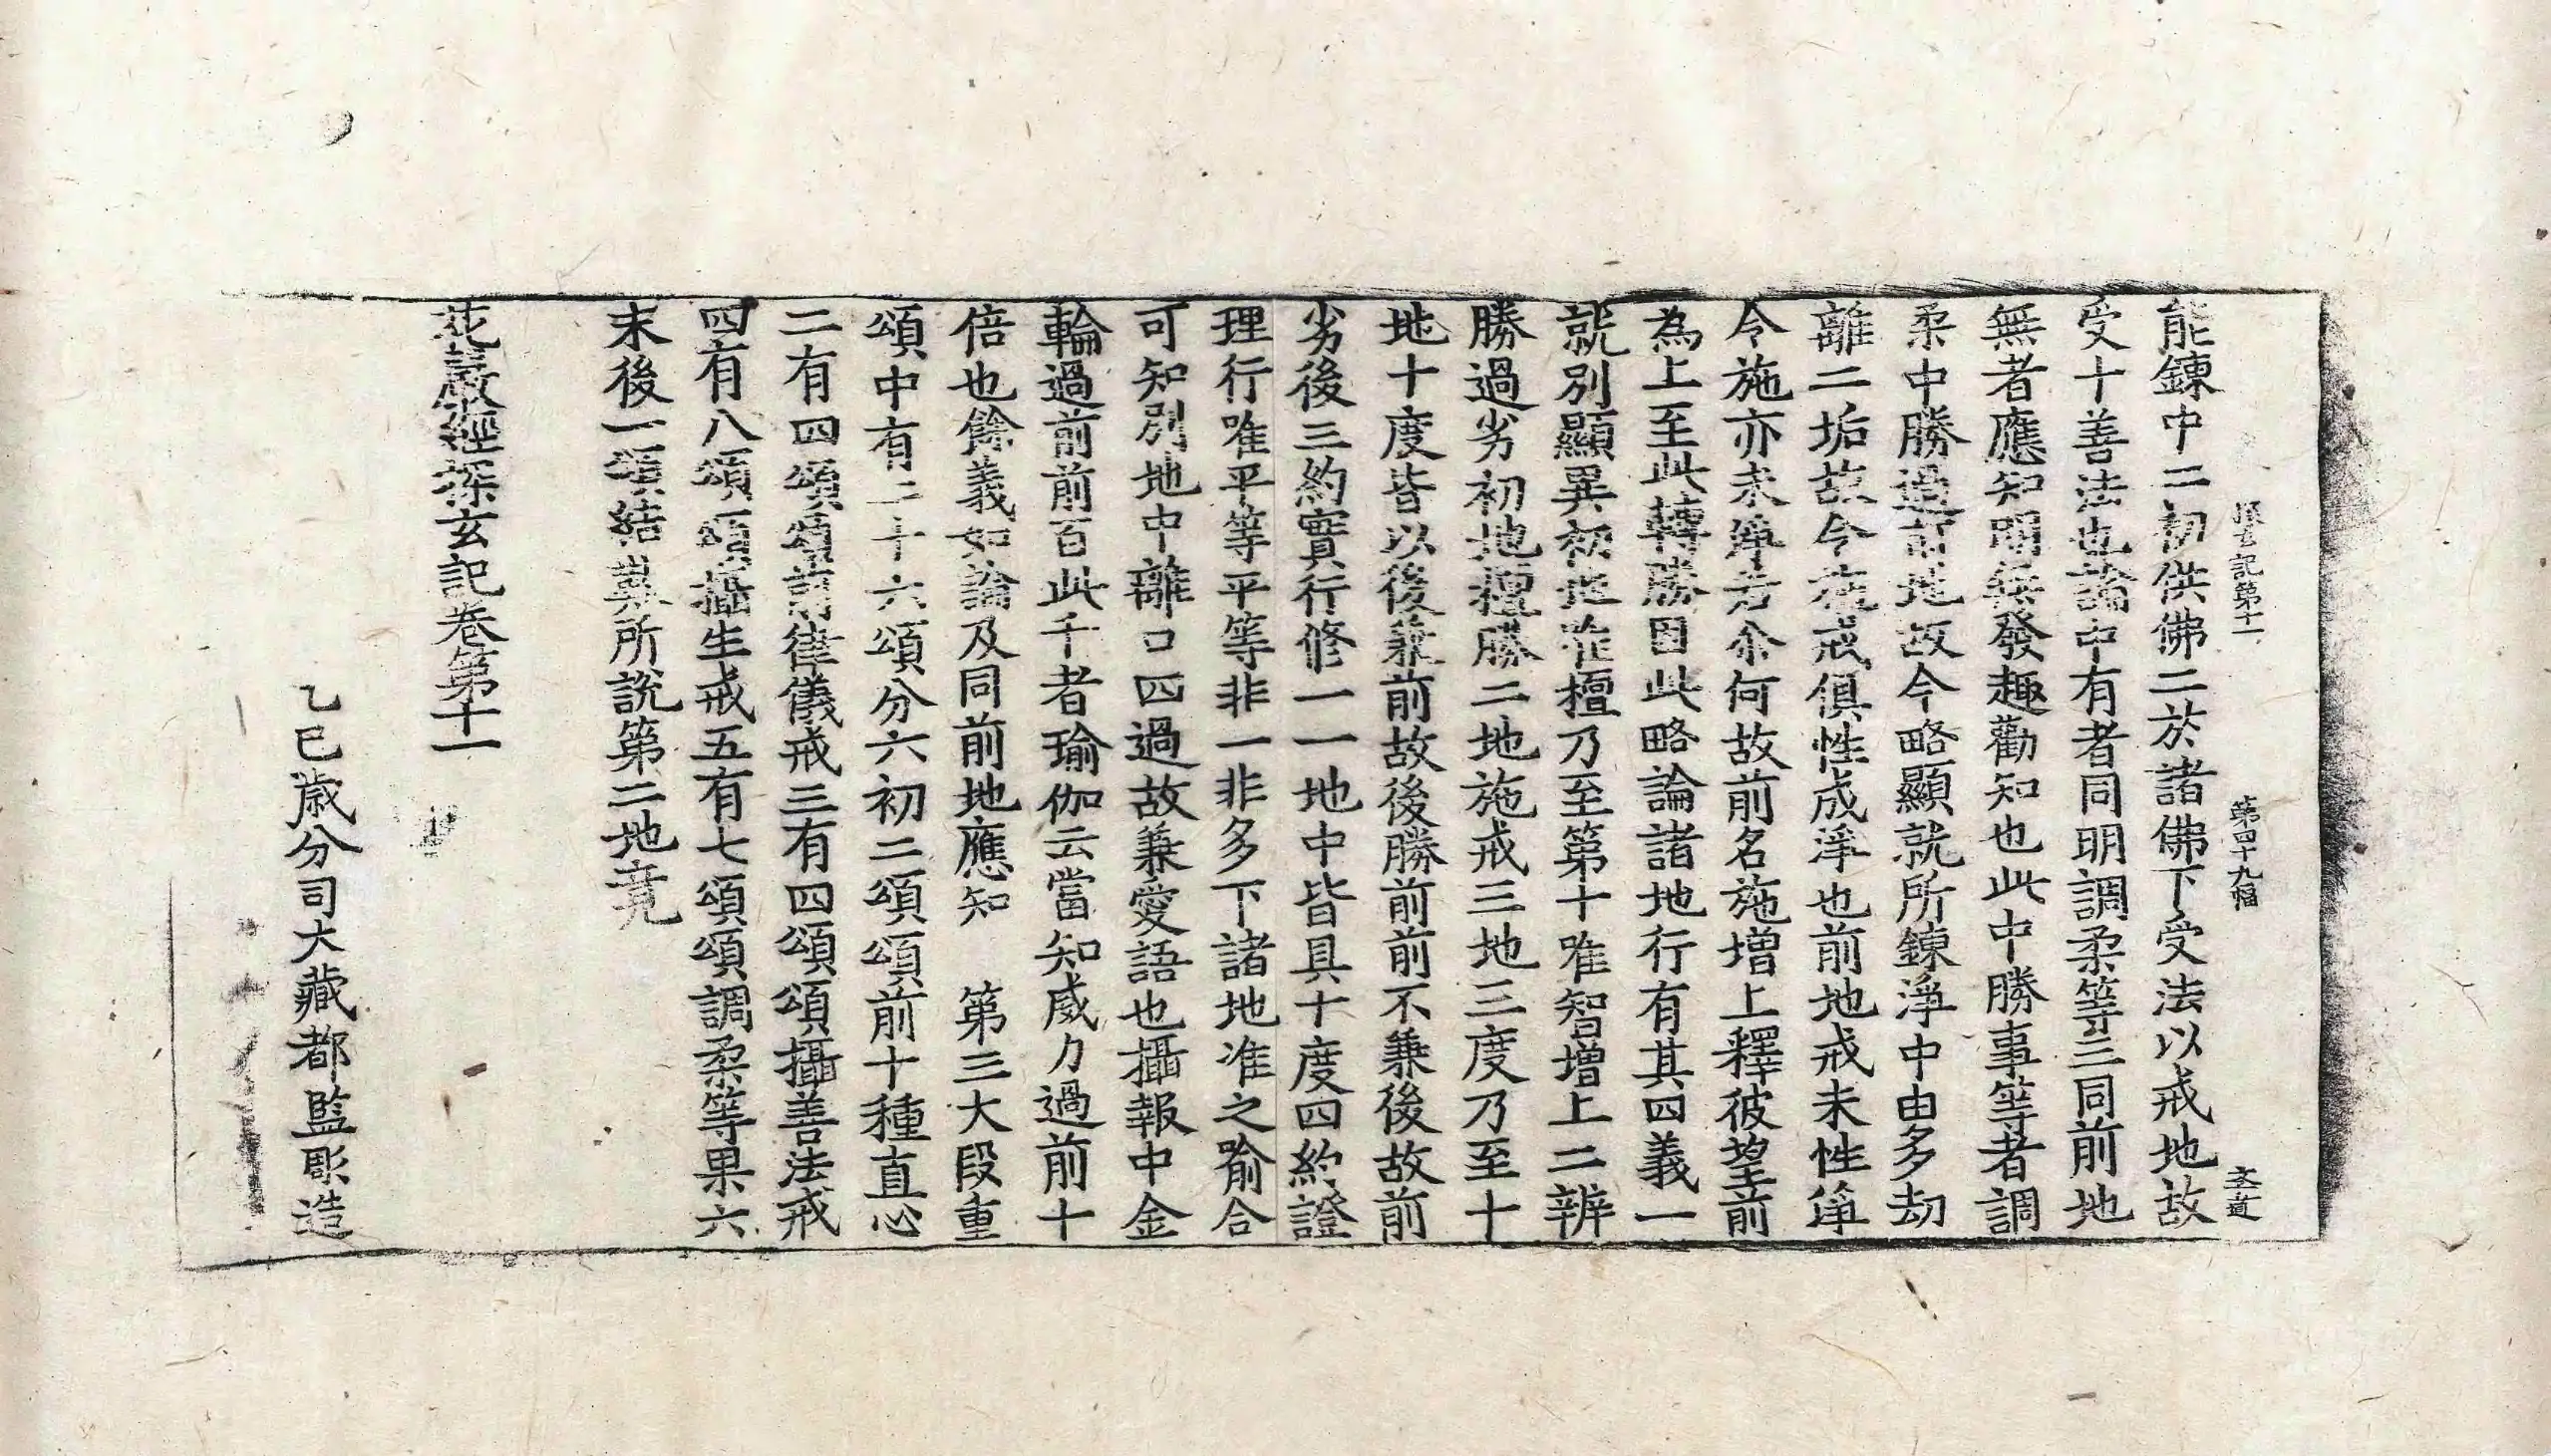 探玄記第十一 第四十九幅 文道
能鍊中二初供佛二於諸佛下受法以戒地故
受十善法也論中有者同明調柔等三同前地
無者應知明無發趣勸知也此中勝事等者調
柔中勝過前地故今略顯就所鍊淨中由多劫
離二垢故今施戒俱性成淨也前地戒未性淨
令施亦未淨若尒何故前名施增上釋彼望前
為上至此轉勝因此略論諸地行有其四義一
就別顯異初地唯檀乃至第十唯智增上二辨
勝過劣初地檀勝二地施戒三地三度乃至十
地十度皆以後兼前故後勝前前不兼後故前
劣後三約實行修一一地中皆具十度四約證
理行唯平等平等非一非多下諸地准之喻合
可知別地中離口四過故兼愛語也攝報中金
輪過前前百此千者瑜伽云當知威力過前十
倍也餘義如論及同前地應知 第三大段重
頌中有二十六頌分六初二頌頌前十種直心
二有四頌頌前律儀戒三有四頌頌攝善法戒
四有八頌頌攝生戒五有七頌頌調柔等果六
末後一頌結嘆所說第二地竟
花嚴經探玄記卷第十一
乙巳歲分司大藏都監彫造